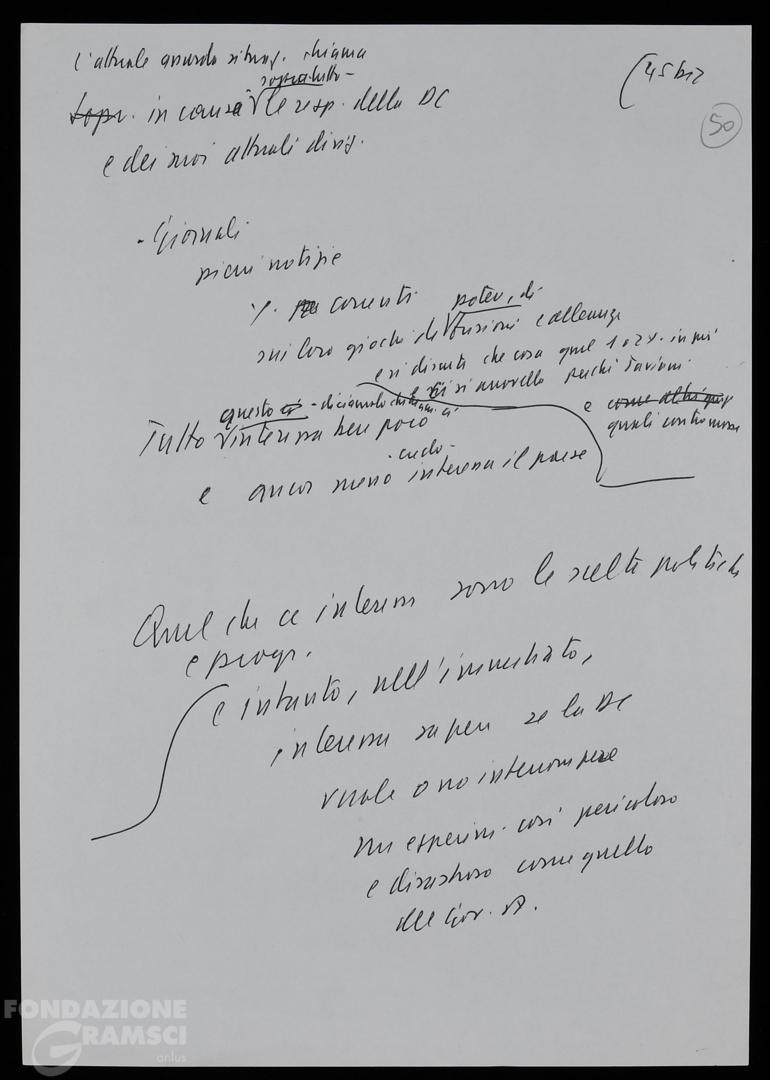 L'attuale assurda situaz. chiama
soprattutto -
(45 biz
50
sopr. in causa le resp. della DC
e dei suoi attuali dirig.
- Giornali
pieni notizie
correnti poter, di
sui loro giochi di fusioni e alleanze
e si discute che cosa quel 1 o 2%. in più
e ci si arrovella perché Taviani
questo ci - diciamolo chiaram. ci
e come altri
quali contromosse
Tutto interessa ben poco
- credo -
e ancor meno interessa il paese
Quel che ci interessa sono le scelte politiche
e progr.
e intanto, nell'immediato,
interessa sapere se la DC
vuole o no interrompere
un esperim. così pericoloso
e disastroso come quello
del Gov. A.
FONDAZIONE
GRAMSCI
onlus